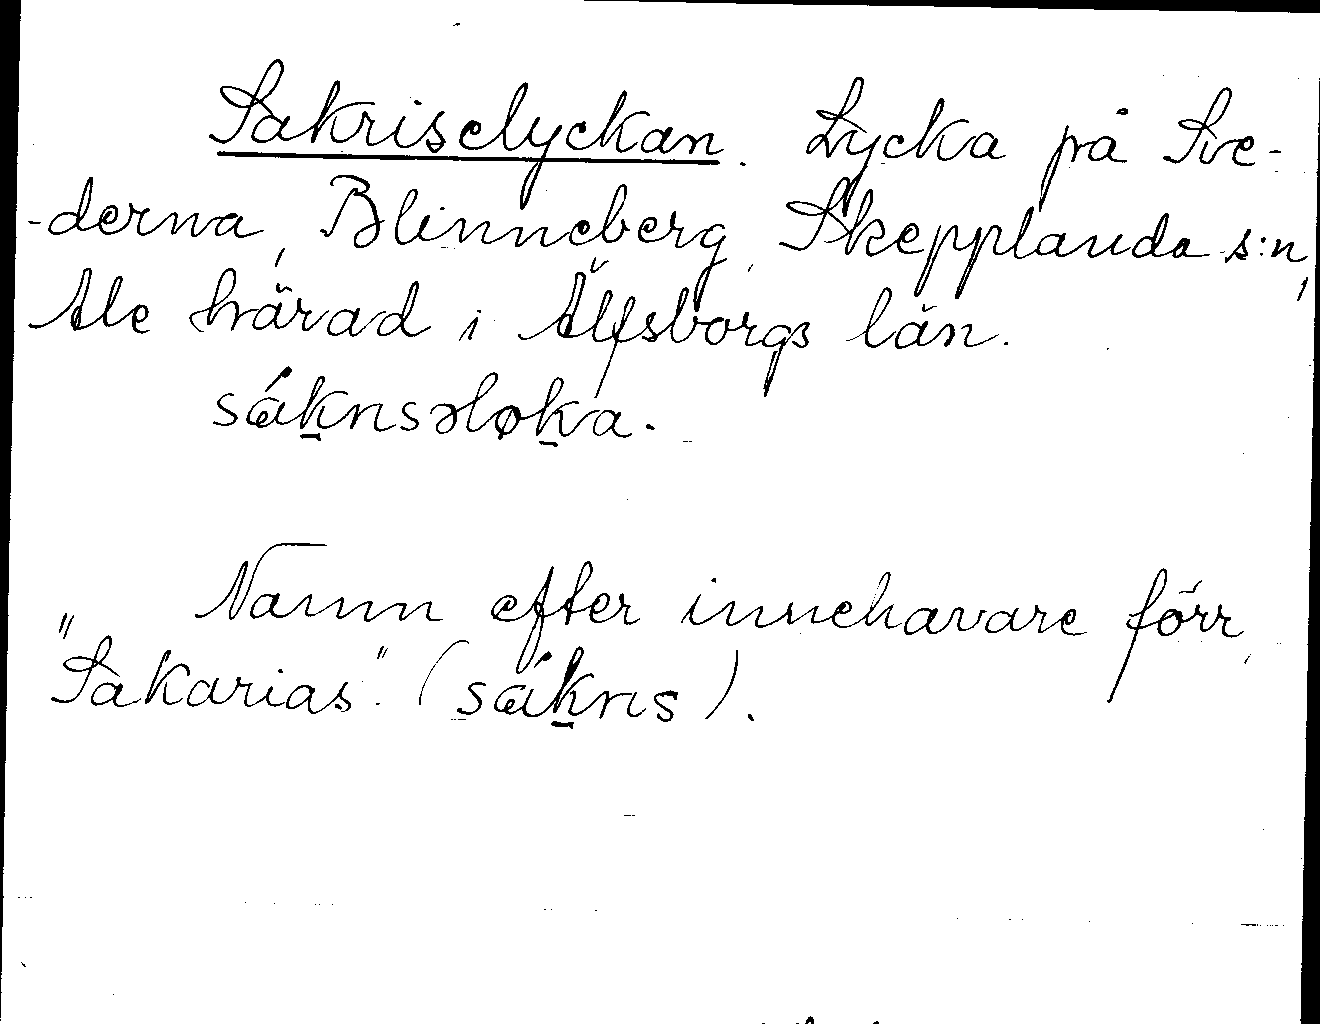 Sakriselyckan. Lycka på Sve-
-derna, Blinneberg, Skepplanda s:n,
Ale härad i Älfsborgs län.
sákrısəløka.
Namn efter innehavare förr,
"Sakarias". (sákrıs).